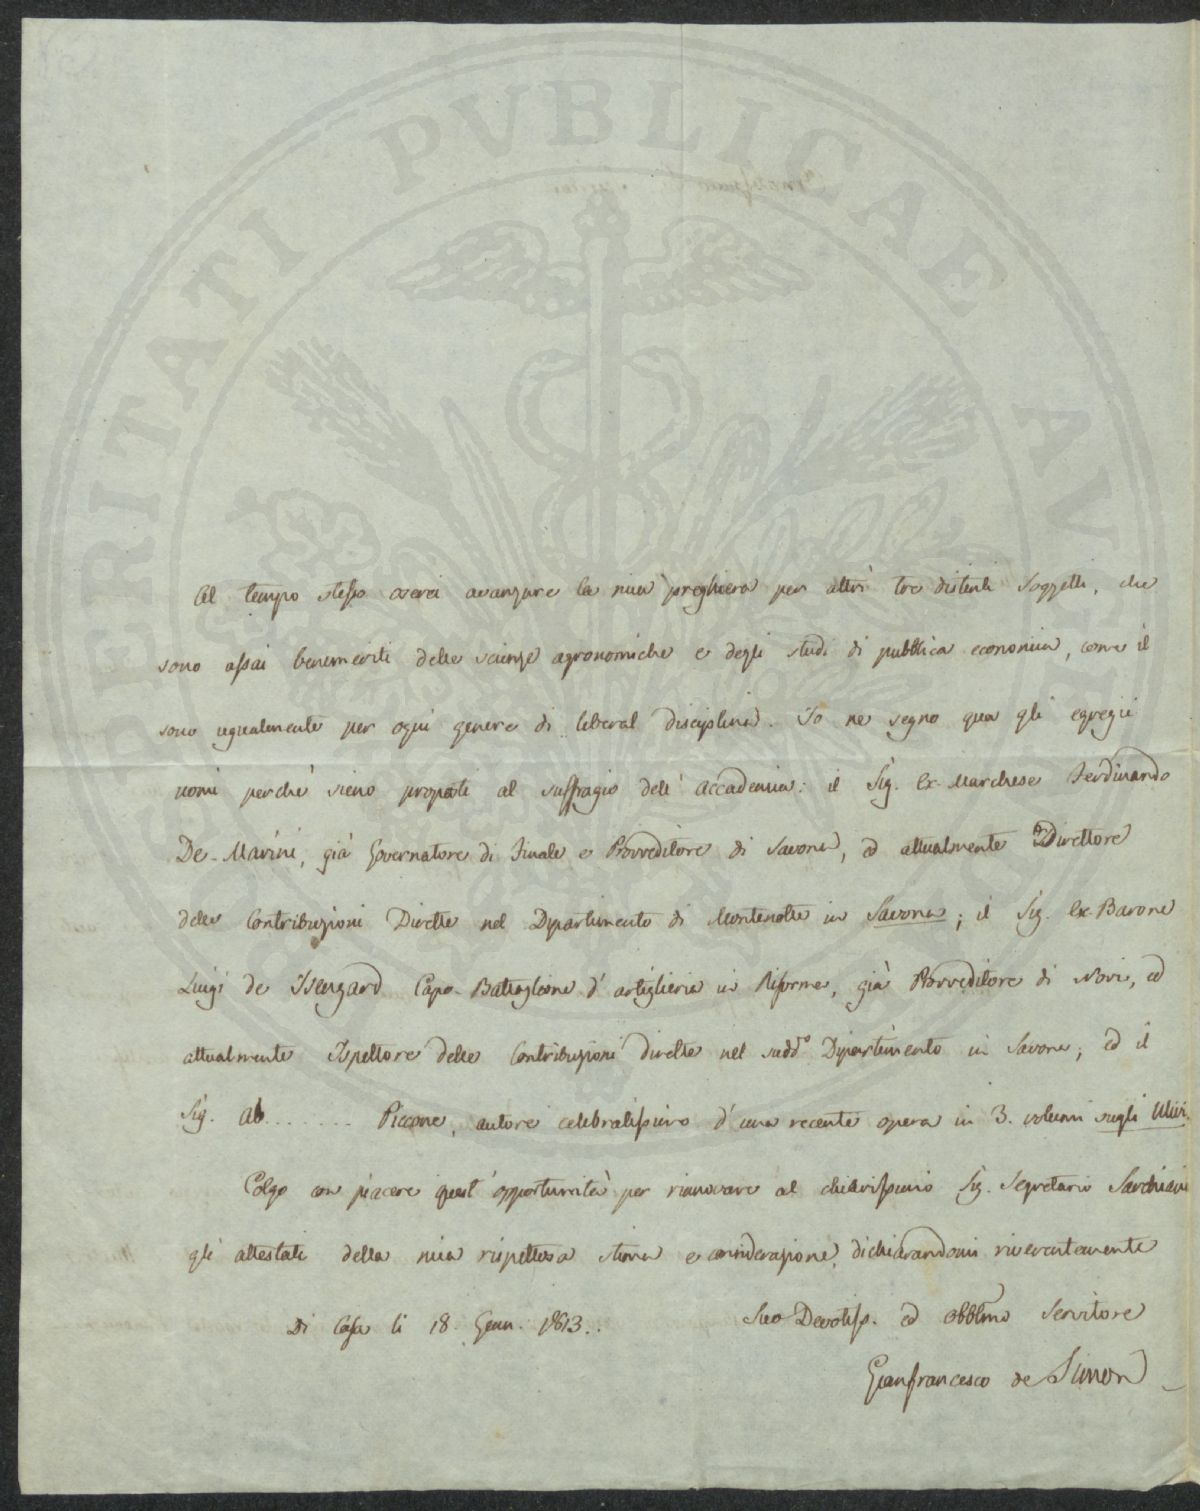 PROSPERITATI PVBLICAE AVGENDAE
Al tempo stesso oserei avanzare la mia preghiera per altri tre distinti Soggetti, che
sono assai benemeriti delle scienze agronomiche e degli studi di pubblica economia, come il
sono ugualmente per ogni genere di liberal disciplina. Io ne segno qua gli egregii
nomi perchè sieno proposti al suffragio dell' Accademia: il Sig. Ex-Marchese Ferdinando
De-Marini, già Governatore di Finale e Provveditore di Savona, ed attualmente Direttore
delle Contribuzioni Dirette nel Dipartimento di Montenotte in Savona; il Sig. Ex-Barone
Luigi de Isengard Capo-Battaglione d' artiglieria in Riforma, già Provveditore di Novi, ed
attualmente Ispettore delle Contribuzioni dirette nel sudd.º Dipartimento in Savona; ed il
Sig. Ab....... Piccone, autore celebratissimo d' una recente opera in 3. volumi sugli Ulivi.
Colgo con piacere quest' opportunità per rinnovare al chiarissimo Sig. Segretario Sarchiani
gli attestati della mia rispettosa stima e considerazione, dichiarandomi riverentemente
Di Casa li 18. Genn. 1813. Suo Devotiss. ed Obblmo Servitore
Gianfrancesco de Simon